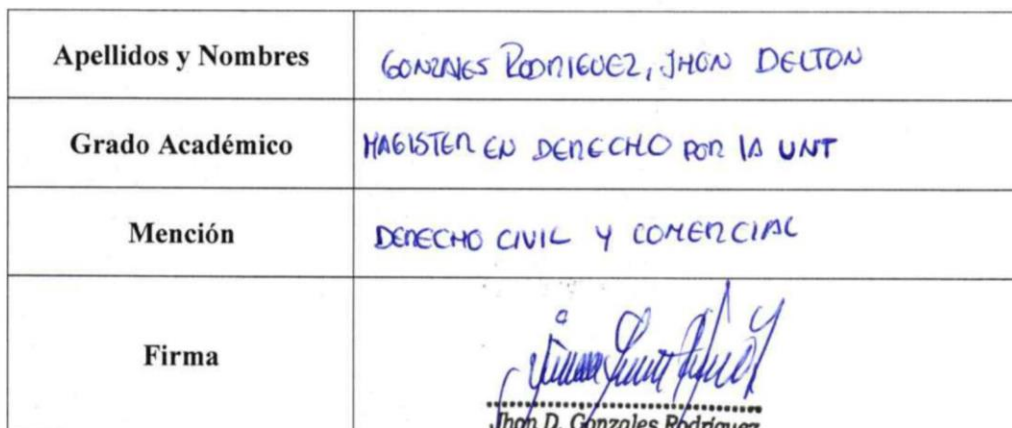 Apellidos y Nombres GONZALES RODRIGUEZ, JHON DELTON
Grado Académico MAGISTER EN DERECHO POR LA UNT
Mención DERECHO CIVIL Y COMERCIAL
Firma
Jhon D. Gonzales Rodríguez